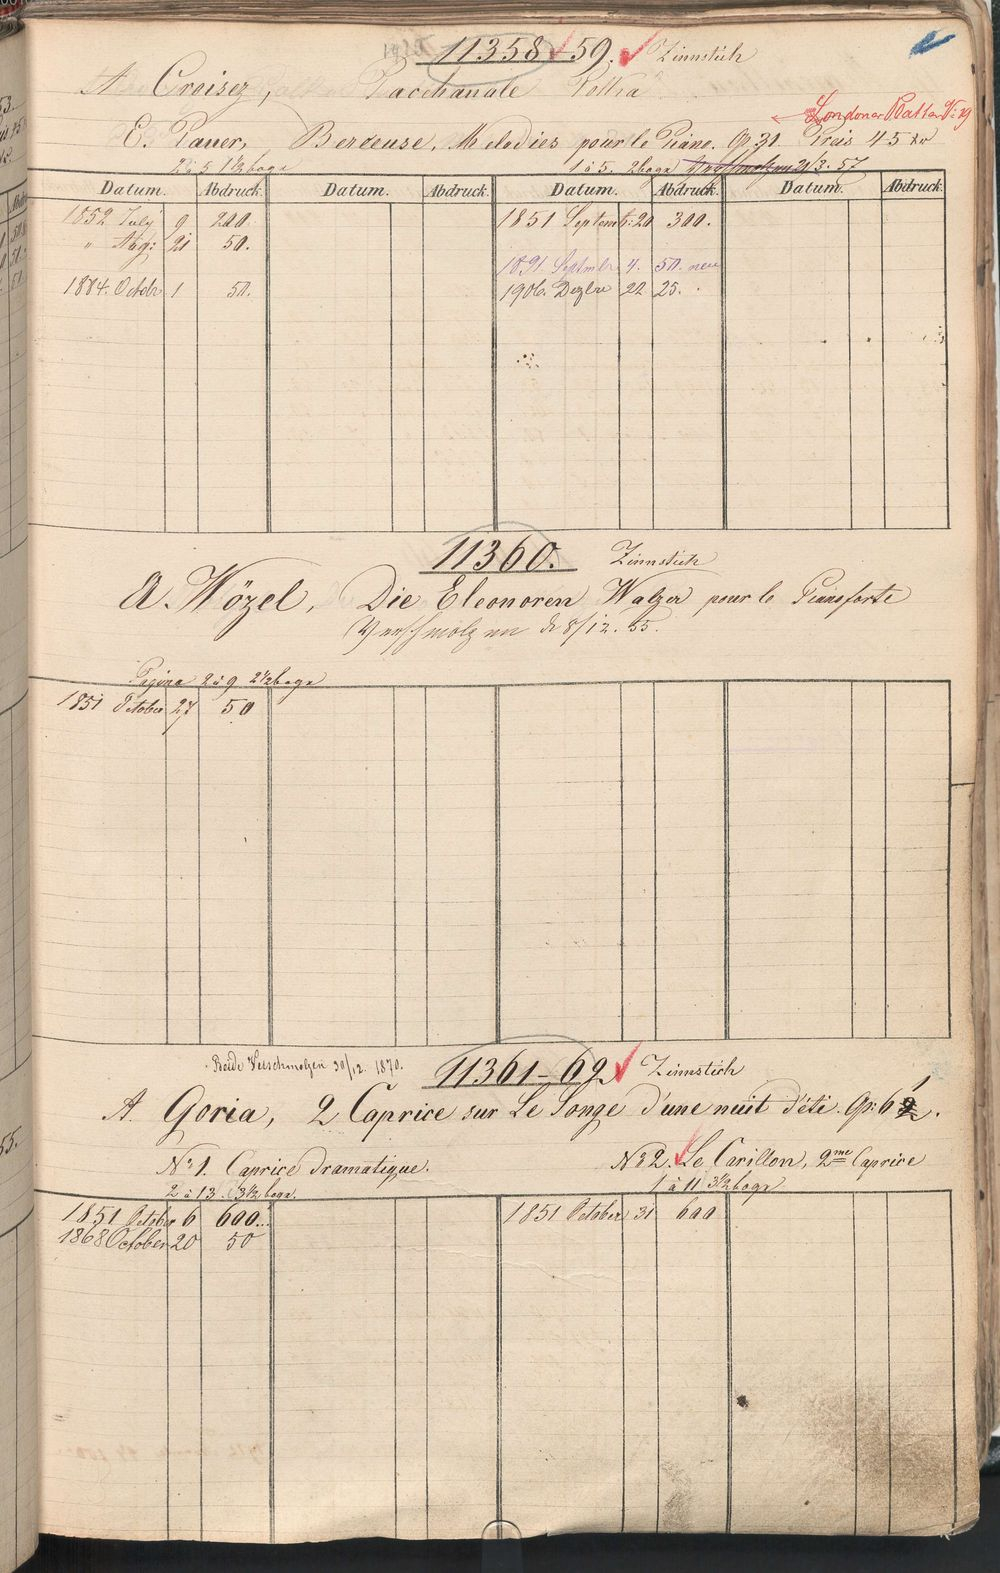 11358-59. Zinnstich
A Croisez, Bacchanale Polka
Londoner Platten No: 19
E. Pauer, Berceuse, Melodies pour le Piano. Op 31. Preis 45 kr
2 à 5 1½ boge
1 à 5. 2 boge 21/3. 57
Datum. Abdruck. Datum. Abdruck. Datum. Abdruck. Datum. Abdruck.
1852 July 9 200.
" Aug: 21 50.
1884. Octobr 1 50.
1851 Septemb: 20 300.
1891 Septmbr 4. 50. neu
1906. Dezbre 22 25.
11360. Zinnstich
A. Wözel, Die Eleonoren Walzer pour le Pianoforte
Verschmolzen d 8/12. 55.
Pagina 2 à 9 2½ boge
1851 October 27 50
Beide Verschmolzen 30/12. 1870.
11361-62 Zinnstich
A Goria, 2 Caprice sur Le Songe d'une nuit d'été. Op: 61.
No 1. Caprice dramatique.
No 2. Le Carillon, 2me Caprice
2 à 13. 3½ boge.
1 à 11 3½ boge
1851 October 6 600..
1868 October 20 50
1851 October 31 600